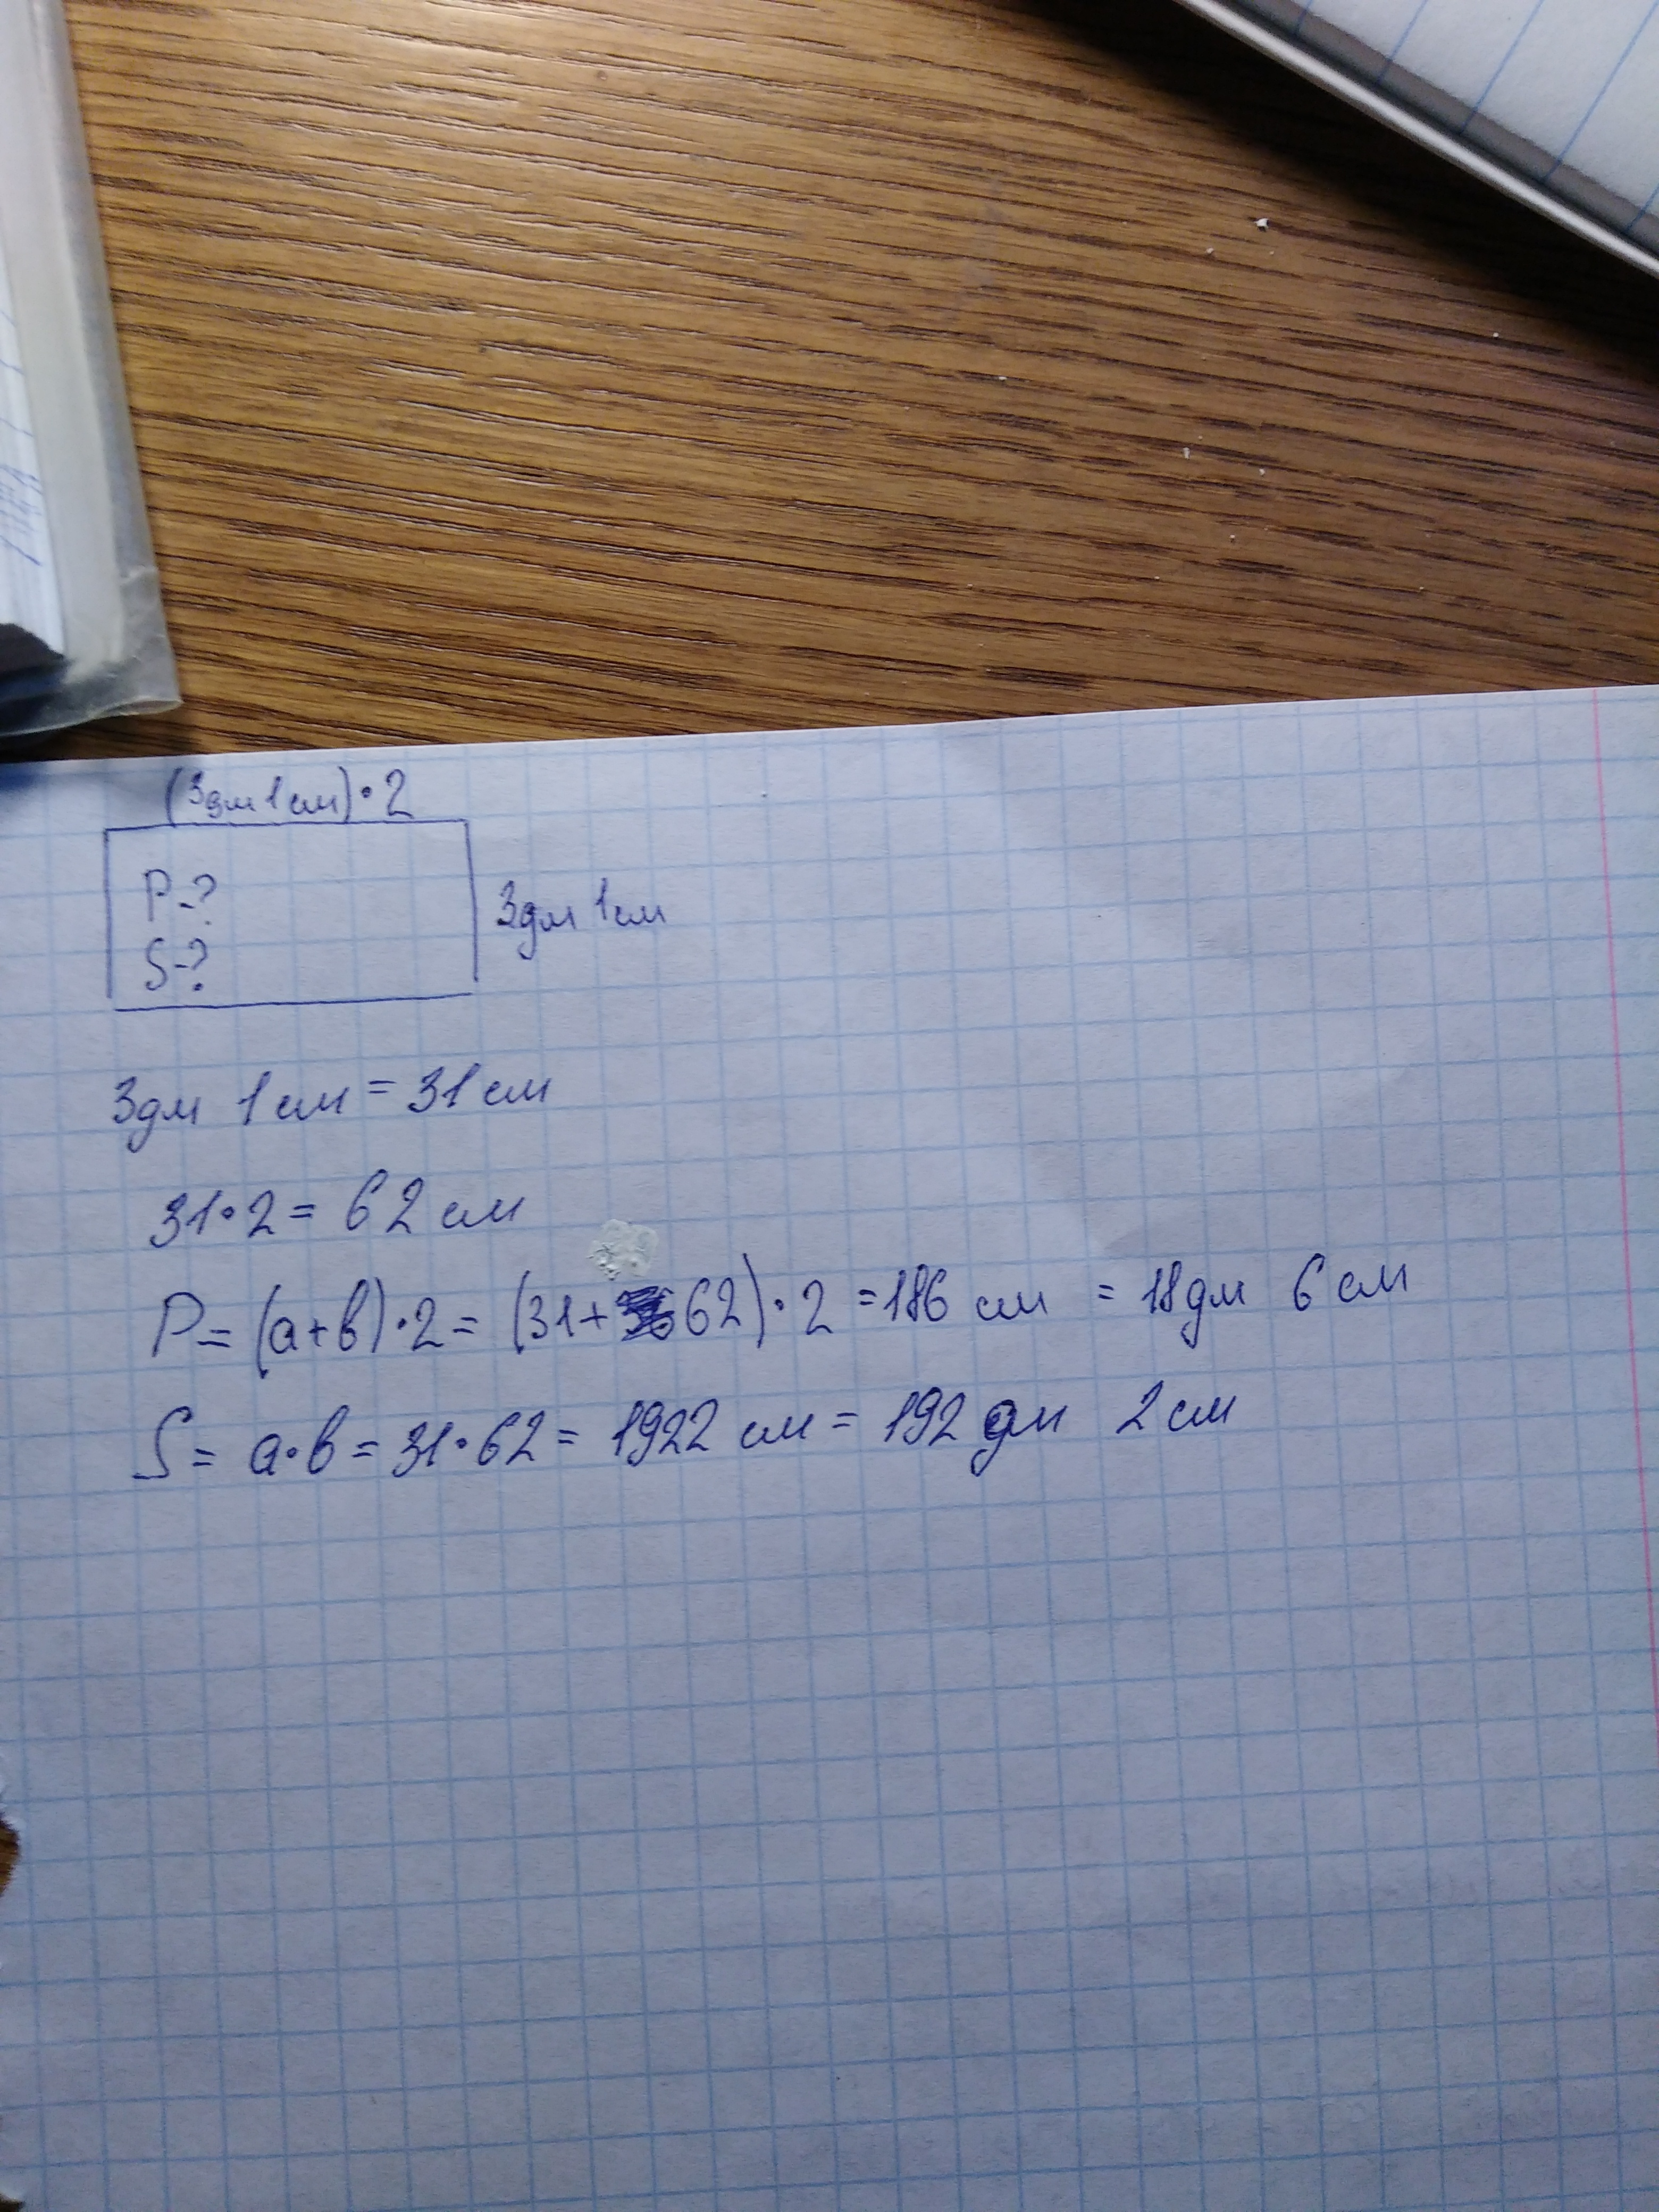 (3дм 1см)•2
P-?
3дм 1см
S-?
3дм 1см = 31см
31•2 = 62 см
P = (a+b)•2 = (31+62)•2 = 186 см = 18дм 6 см
S = a•b = 31•62 = 1922 см = 192 дм 2см